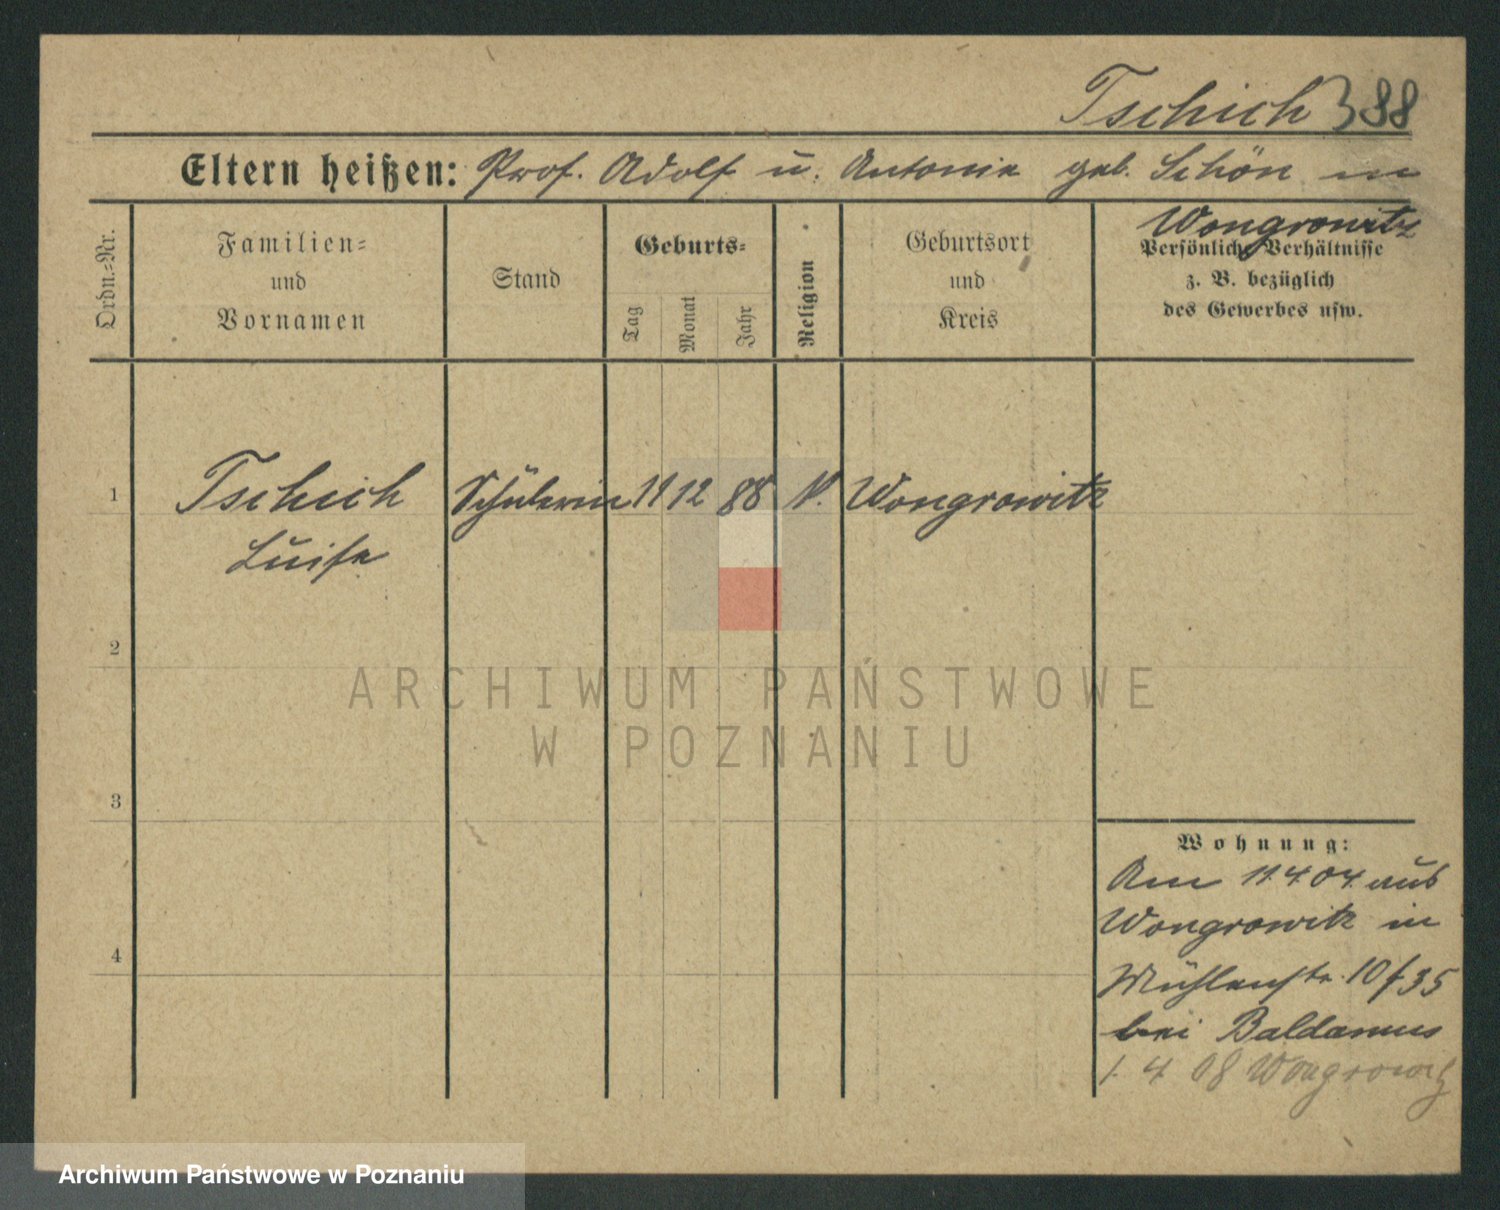 Tschich 388
Eltern heißen: Prof. Adolf u. Antonie geb. Schön in
Wongrowitz
Ordn.-Nr.
Familien-
und
Vornamen
Stand
Geburts-
Tag
Monat
Jahr
Religion
Geburtsort
und
Kreis
Persönliche Verhältnisse
z. B. bezüglich
des Gewerbes usw.
1 Tschich Schülerin 11 12 88 Wongrowitz
Luise
2
3
4
Wohnung:
Am 11 4 04 aus
Wongrowitz in
Mühlenstr. 10 f 35
bei Baldamus
1. 4 08 Wongrowitz
ARCHIWUM PAŃSTWOWE
W POZNANIU
Archiwum Państwowe w Poznaniu